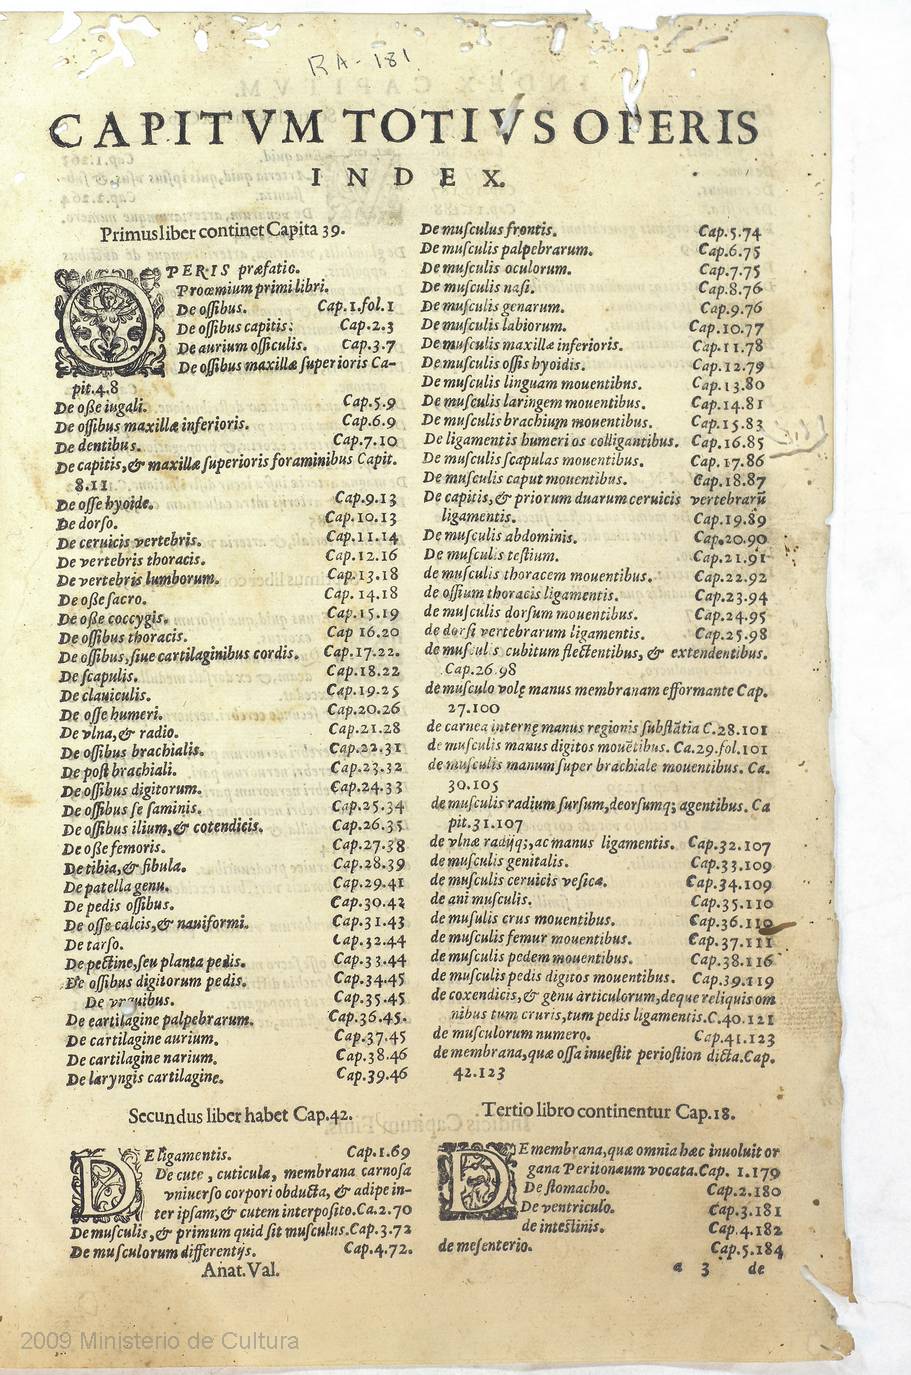 RA-181
CAPITVM TOTIVS OPERIS
INDEX.
Primus liber continet Capita 39.
OPERIS præfatio.
Proœmium primi libri.
De oſſibus. Cap.1.fol.1
De oſſibus capitis: Cap.2.3
De aurium oſſiculis. Cap.3.7
De oſſibus maxillæ ſuperioris Ca-
pit.4.8
De oße iugali. Cap.5.9
De oſſibus maxillæ inferioris. Cap.6.9
De dentibus. Cap.7.10
De capitis,& maxillæ ſuperioris foraminibus Capit.
8.11
De oſſe hyoide. Cap.9.13
De dorſo. Cap.10.13
De ceruicis vertebris. Cap.11.14
De vertebris thoracis. Cap.12.16
De vertebris lumborum. Cap.13.18
De oße ſacro. Cap.14.18
De oße coccygis. Cap.15.19
De oſſibus thoracis. Cap 16.20
De oſſibus,ſiue cartilaginibus cordis. Cap.17.22.
De ſcapulis. Cap.18.22
De clauiculis. Cap.19.25
De oſſe humeri. Cap.20.26
De vlna,& radio. Cap.21.28
De oſſibus brachialis. Cap.22.31
De poſt brachiali. Cap.23.32
De oſſibus digitorum. Cap.24.33
De oſſibus ſe ſaminis. Cap.25.34
De oſſibus ilium,& cotendicis. Cap.26.35
De oße femoris. Cap.27.38
De tibia,& fibula. Cap.28.39
De patella genu. Cap.29.41
De pedis oſſibus. Cap.30.42
De oſſe calcis,& nauiformi. Cap.31.43
De tarſo. Cap.32.44
De pectine,ſeu planta pedis. Cap.33.44
De oſſibus digitorum pedis. Cap.34.45
De Cap.35.45
De cartilagine palpebrarum. Cap.36.45.
De cartilagine aurium. Cap.37.45
De cartilagine narium. Cap.38.46
De laryngis cartilagine. Cap.39.46
Secundus liber habet Cap.42.
DE ligamentis. Cap.1.69
De cute , cuticula, membrana carnoſa
vniuerſo corpori obducta, & adipe in-
ter ipſam,& cutem interpoſito.Ca.2.70
De muſculis,& primum quid ſit muſculus.Cap.3.72
De muſculorum differentijs. Cap.4.72.
Anat.Val.
De muſculus frontis. Cap.5.74
De muſculis palpebrarum. Cap.6.75
De muſculis oculorum. Cap.7.75
De muſculis naſi. Cap.8.76
De muſculis genarum. Cap.9.76
De muſculis labiorum. Cap.10.77
De muſculis maxillæ inferioris. Cap.11.78
De muſculis oſſis hyoidis. Cap.12.79
De muſculis linguam mouentibus. Cap.13.80
De muſculis laringem mouentibus. Cap.14.81
De muſculis brachium mouentibus. Cap.15.83
De ligamentis humeri os colligantibus. Cap.16.85
De muſculis ſcapulas mouentibus. Cap.17.86
De muſculis caput mouentibus. Cap.18.87
De capitis,& priorum duarum ceruicis vertebrarū
ligamentis. Cap.19.89
De muſculis abdominis. Cap.20.90
De muſculis teſtium. Cap.21.91
de muſculis thoracem mouentibus. Cap.22.92
de oſſium thoracis ligamentis. Cap.23.94
de muſculis dorſum mouentibus. Cap.24.95
de dorſi vertebrarum ligamentis. Cap.25.98
de muſculis cubitum flectentibus, & extendentibus.
Cap.26.98
de muſculo volę manus membranam efformante Cap.
27.100
de carnea internę manus regionis ſubſtātia C.28.101
de muſculis manus digitos mouētibus. Ca.29.fol.101
de muſculis manum ſuper brachiale mouentibus. Ca.
30.105
de muſculis radium ſurſum,deorſumq; agentibus. Ca
pit.31.107
de vlnæ radijq;,ac manus ligamentis. Cap.32.107
de muſculis genitalis. Cap.33.109
de muſculis ceruicis veſicæ. Cap.34.109
de ani muſculis. Cap.35.110
de muſulis crus mouentibus. Cap.36.110
de muſculis femur mouentibus. Cap.37.111
de muſculis pedem mouentibus. Cap.38.116
de muſculis pedis digitos mouentibus. Cap.39.119
de coxendicis,& genu articulorum,deque reliquis om
nibus tum cruris,tum pedis ligamentis.C.40.121
de muſculorum numero. Cap.41.123
de membrana,quæ oſſa inueſtit perioſtion dicta.Cap.
42.123
Tertio libro continentur Cap.18.
DE membrana,quæ omnia hæc inuoluit or
gana Peritonæum vocata.Cap. 1.179
De ſtomacho. Cap.2.180
De ventriculo. Cap.3.181
de inteſtinis. Cap.4.182
de meſenterio. Cap.5.184
a 3 de
2009 Ministerio de Cultura